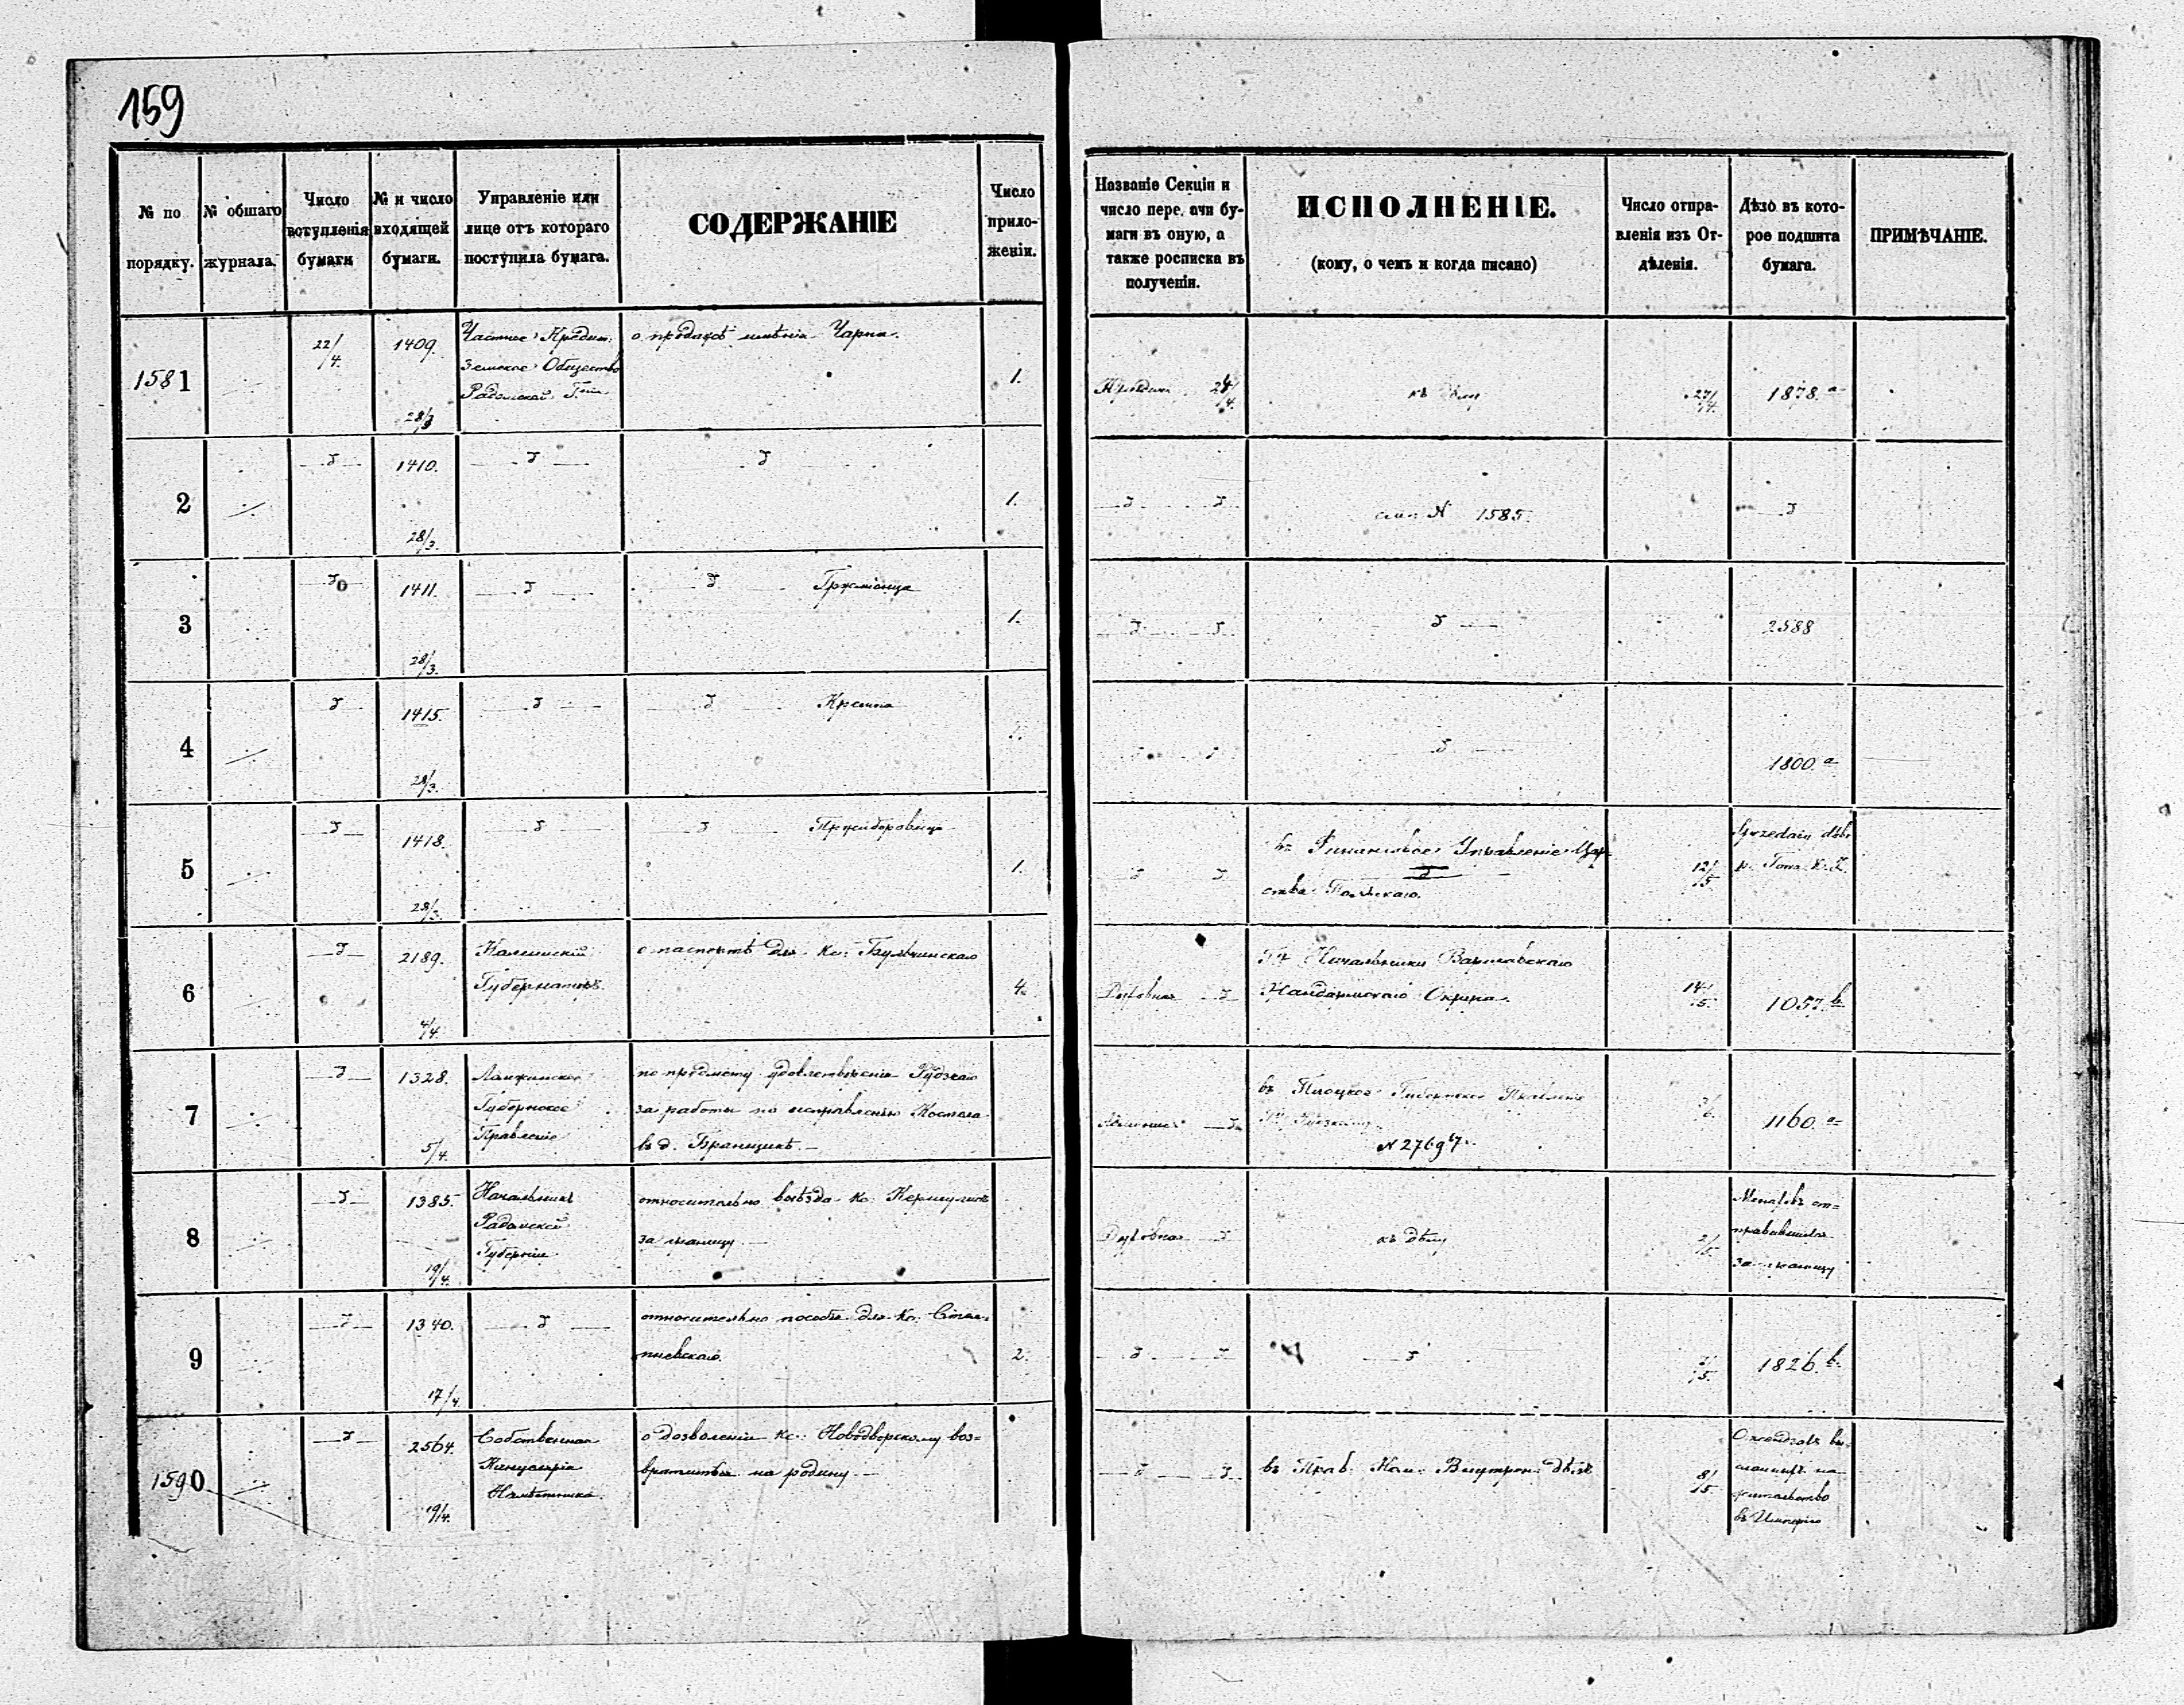 159
№ по порядку.
№ общаго журнала.
Число вступленія бумаги
№ и число входящей бумаги.
Управленіе или лице отъ котораго поступила бумага.
СОДЕРЖАНІЕ
Число приложеніи.
Названіе Секціи и число пере. ачи бумаги въ оную, а также росписка въ полученіи.
ИСПОЛНЕНІЕ.
(кому, о чемъ и когда писано)
Число отправленія изъ Отдѣленія.
Дѣло въ которое подшита бумага.
ПРИМѢЧАНІЕ.
1581
22/4.
1409.
28/3
Частное Кредит.
Земское Общество
Радомской Г.
о продажѣ имѣнія Чарна.
1.
24/4.
къ дѣлу
27/4.
1878. a
2
1410.
28/3.
1.
N 1585.
3
1411.
28/3.
Гржміонца
1.
2588
4
1415.
28/3.
Кремпа
1800. a
5
1418.
28/3.
1.
въ Финансовое Управленіе Цар-
ства Польскаго.
12/5.
6
2189.
4/4
Калишскій
Губернаторъ.
о паспортѣ для Кс:
4.
Духовная
Гр Начальнику Варшавскаго
Жандармскаго Округа.
14/5.
1057. b
7
1328.
5/4.
Ломжинское
Губернское
Правленіе
по предмету удовлетворенія Рудзкаго
за работы по исправленію Костела
въ д. Бранщикѣ. —
въ Плоцкое Губернское Правленіе
N 2769
1160. a
8
1385.
19/4.
Начальникъ
Радомской
Губерніи
относительно выѣзда Кс:
за границу. —
Духовная
къ дѣлу
2/5.
за границу
9
1340.
17/4.
относительно пособія для Кс: Стем-
пневскаго.
2.
1826. b.
1590
2564.
19/4.
Собственная
Канцелярія
Намѣстника.
о дозволеніи Кс: Новодворскому воз=
вратиться на родину. —
въ Прав. Ком. Внутрен. Дѣлъ
8/5
жительство
въ Имперію